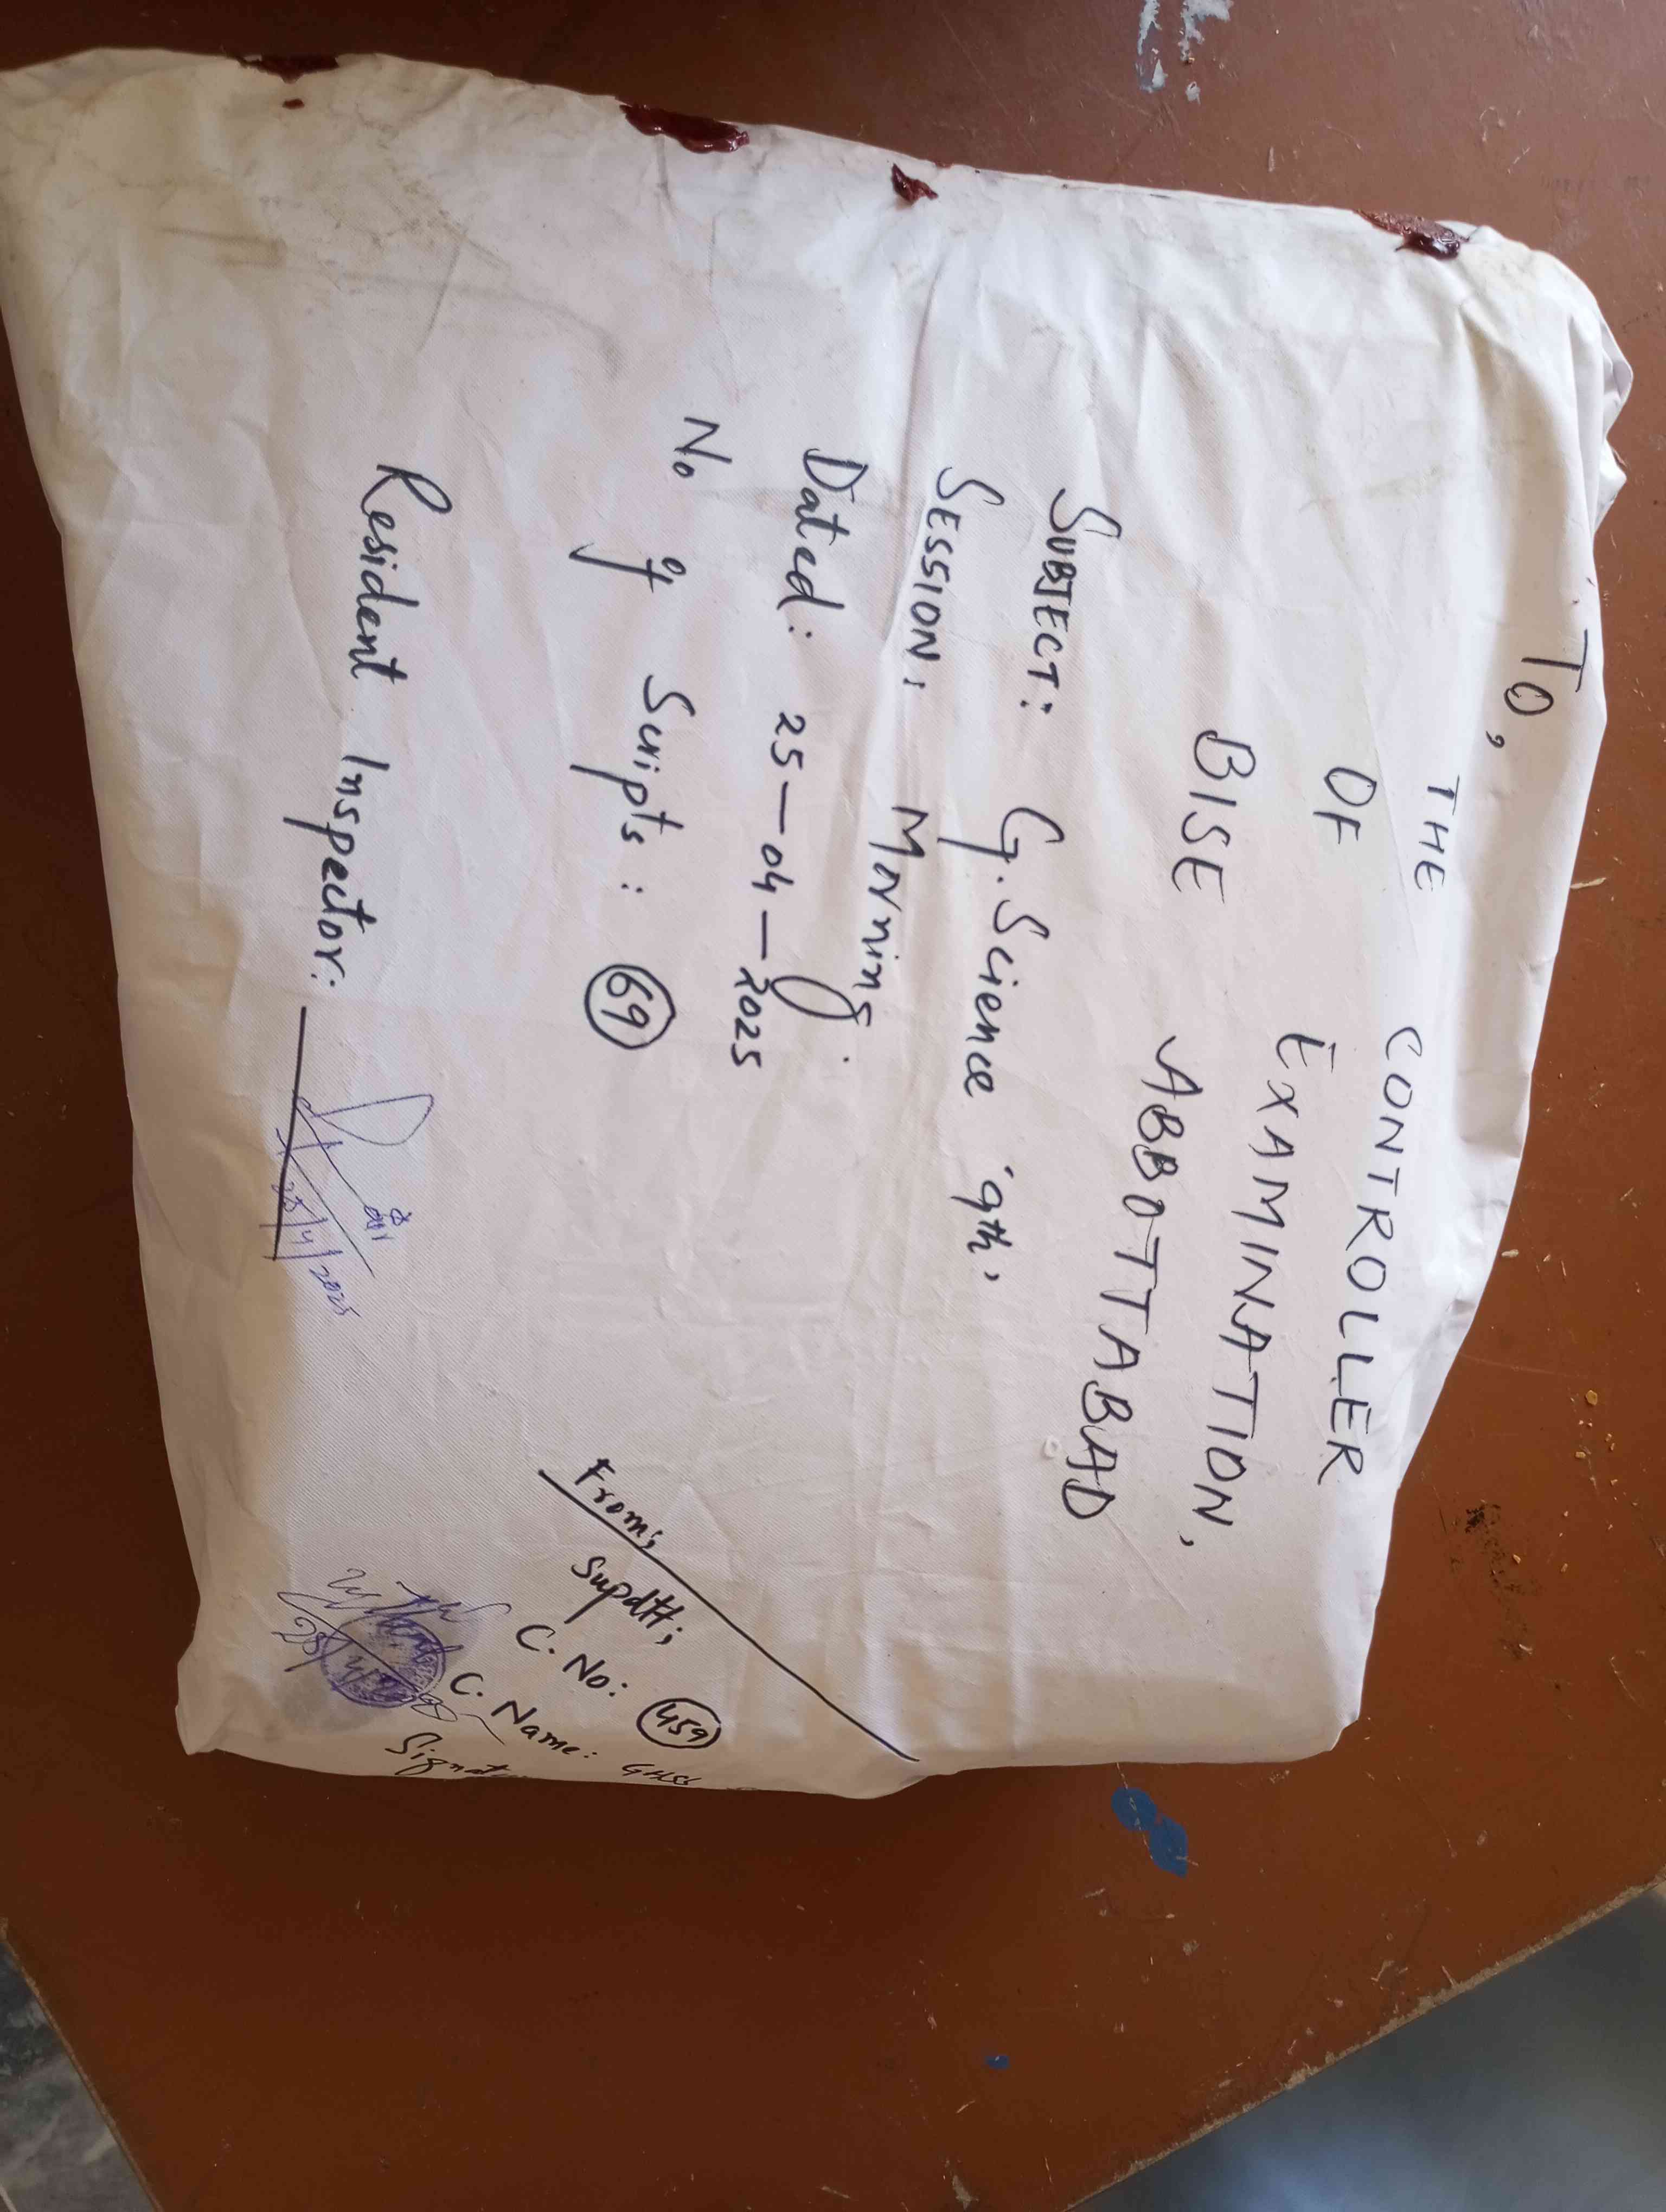 To,
THE CONTROLLER
OF EXAMINATION,
BISE ABBOTTABAD
SUBJECT: G. Science "9th,
SESSION: Morning
Dated: 25-04-2025
No of Scripts: 69
Resident Inspector:
25/4/2025
From;
Supdtt;
C. No: 459
C. Name: